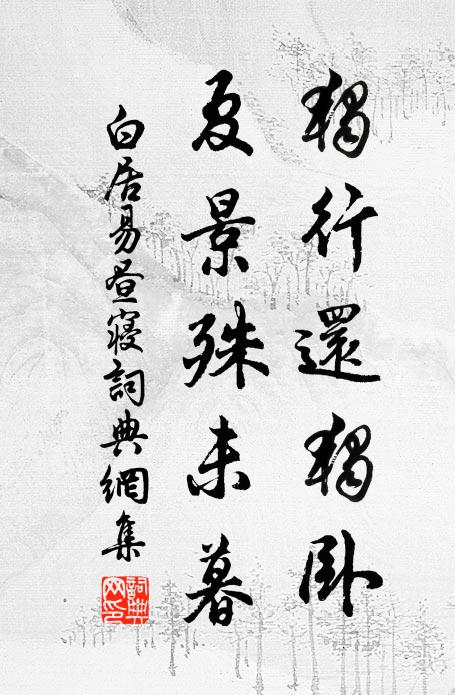 獨行還獨臥
夏景殊未暮
白居易晝寢詞典網集
詞典網印